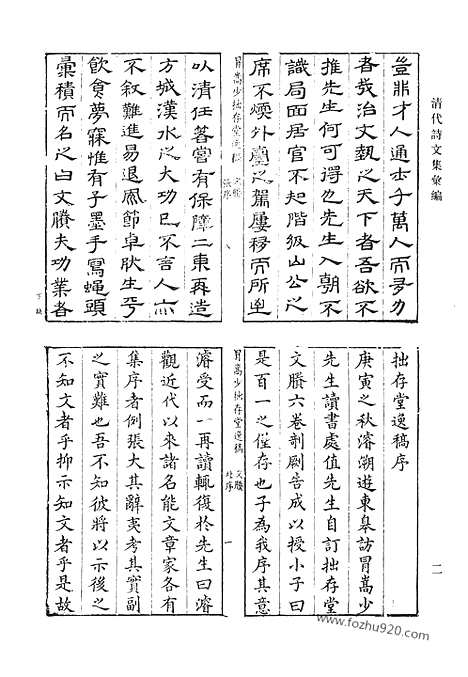 清代詩文集彙編
豈非才人通士乎萬人而
者哉治文執之天下者吾欲不
推先生何可得也先生入朝不
識局面居官不知階級山公之
席不煖外臺之駕屢移而所至
冒嵩少拙存堂逸稿 文賸 張序 八
以清任著嘗有保障二東再造
方城漢水之大功已不言人亦
不敘難進易退風節卓肰生平
飲食夢寐惟有子墨手寫蠅頭
彙積而名之曰文賸夫功業者
下缺
拙存堂逸稿序
庚寅之秋濬溯遊東皋訪冒嵩少
先生讀書處值先生自訂拙存堂
文賸六卷剞劂告成以授小子曰
是百一之僅存也子為我序其意
冒嵩少拙存堂逸稿 文賸 杜序 一
濬受而一再讀輒復於先生曰濬
觀近代以來諸名能文章家各有
集序者例張大其辭夷考其實副
之實難也吾不知彼將以示後之
不知文者乎抑示知文者乎是故
二
www.fozhu920.com